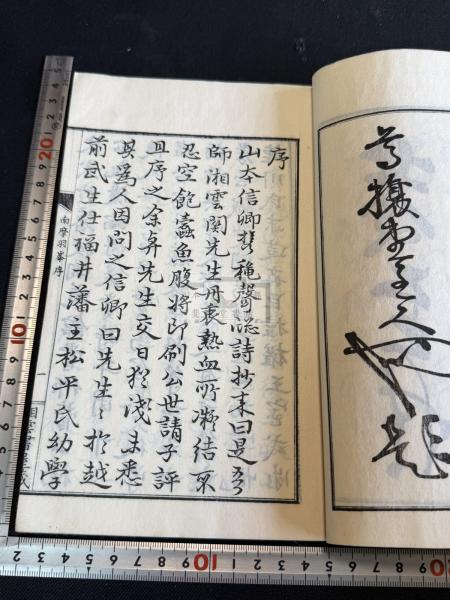 序
山本信卿携穐聲窓詩抄来曰是吾
師湘雲関先生丹衷熱血所凝結不
忍空飽蠹魚腹将印刷公世請子評
且序之余弁先生交日猶浅未悉
其為人因問之信卿曰先生〻於越
前武生仕福井藩主松平氏幼學
南摩羽峯序
一
題